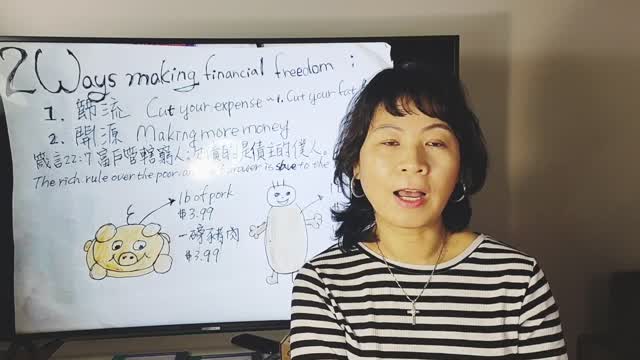 2 Ways making financial freedom :
1. 節流 Cut your expense ~ 1. Cut your fat
2. 開源 Making more money
箴言22:7 富戶管轄窮人;
是債主的僕人。
The rich rule over the poor, and
is slave to the
1b of pork
$3.99
一磅豬肉
$3.99